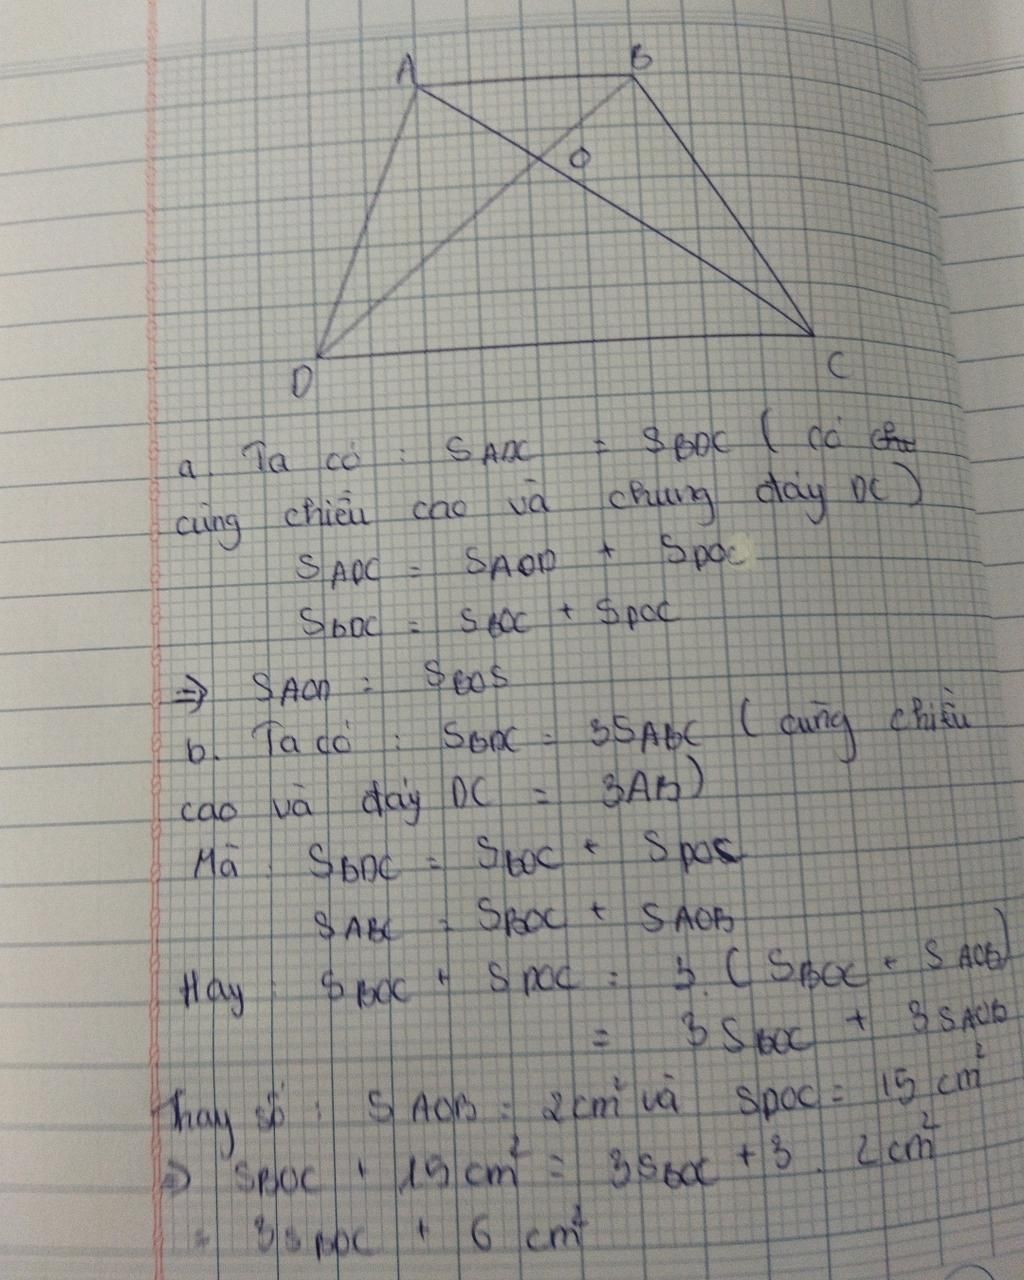 A B
O
D C
a. Ta có : SADC = SBDC ( có
cùng chiều cao và chung đáy DC)
SADC = SAOD + SDOC
SBDC = SBOC + SDOC
⇒ SAOD = SBOS
b. Ta có : SBDC = 3SABC ( cùng chiều
cao và đáy DC = 3AB)
Mà : SBDC = SBOC + SDOC
SABC = SBOC + SAOB
Hay : SBOC + SDOC = 3. ( SBOC + SAOB)
= 3SBOC + 3SAOB
Thay số : SAOB = 2cm² và SDOC = 15 cm²
⇒ SBOC + 15 cm² = 3SBOC + 3 . 2cm²
= 3SBOC + 6 cm²